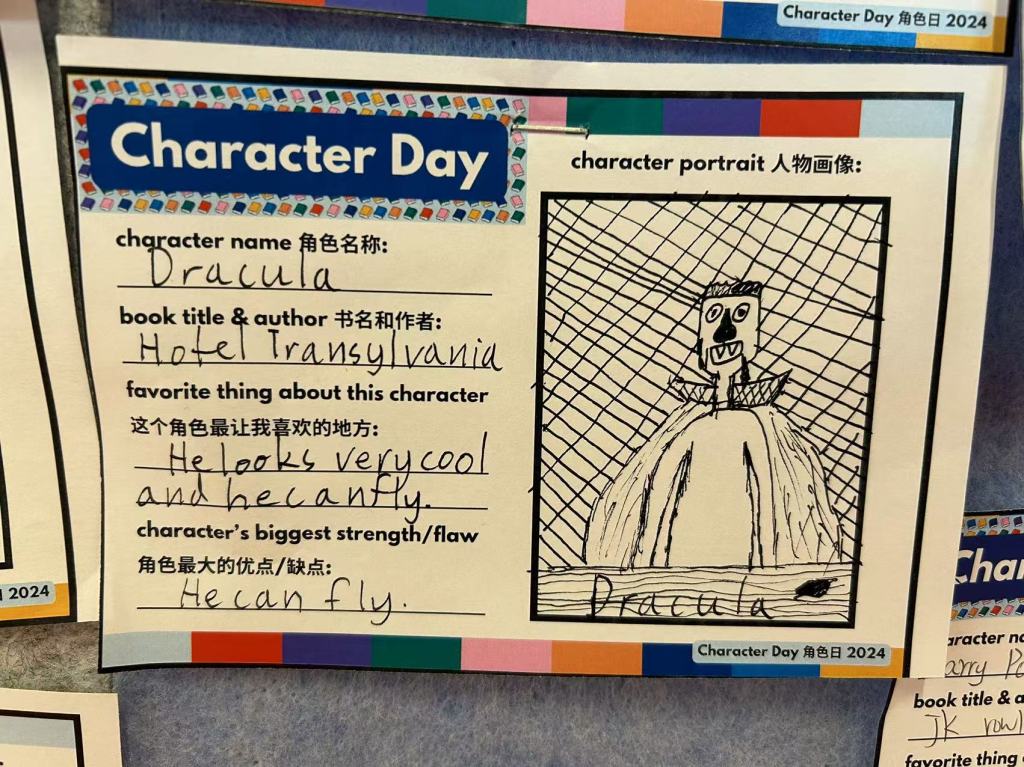 Character Day 角色日 2024
Character Day
character name 角色名称:
Dracula
book title & author 书名和作者:
Hotel Transylvania
favorite thing about this character
这个角色最让我喜欢的地方:
He looks very cool
and he can fly.
character's biggest strength/flaw
角色最大的优点/缺点:
He can fly.
character portrait 人物画像:
Dracula
Character Day 角色日 2024
2024
Char
aracter na
arry Po
book title & a
JK rowl
favorite thing